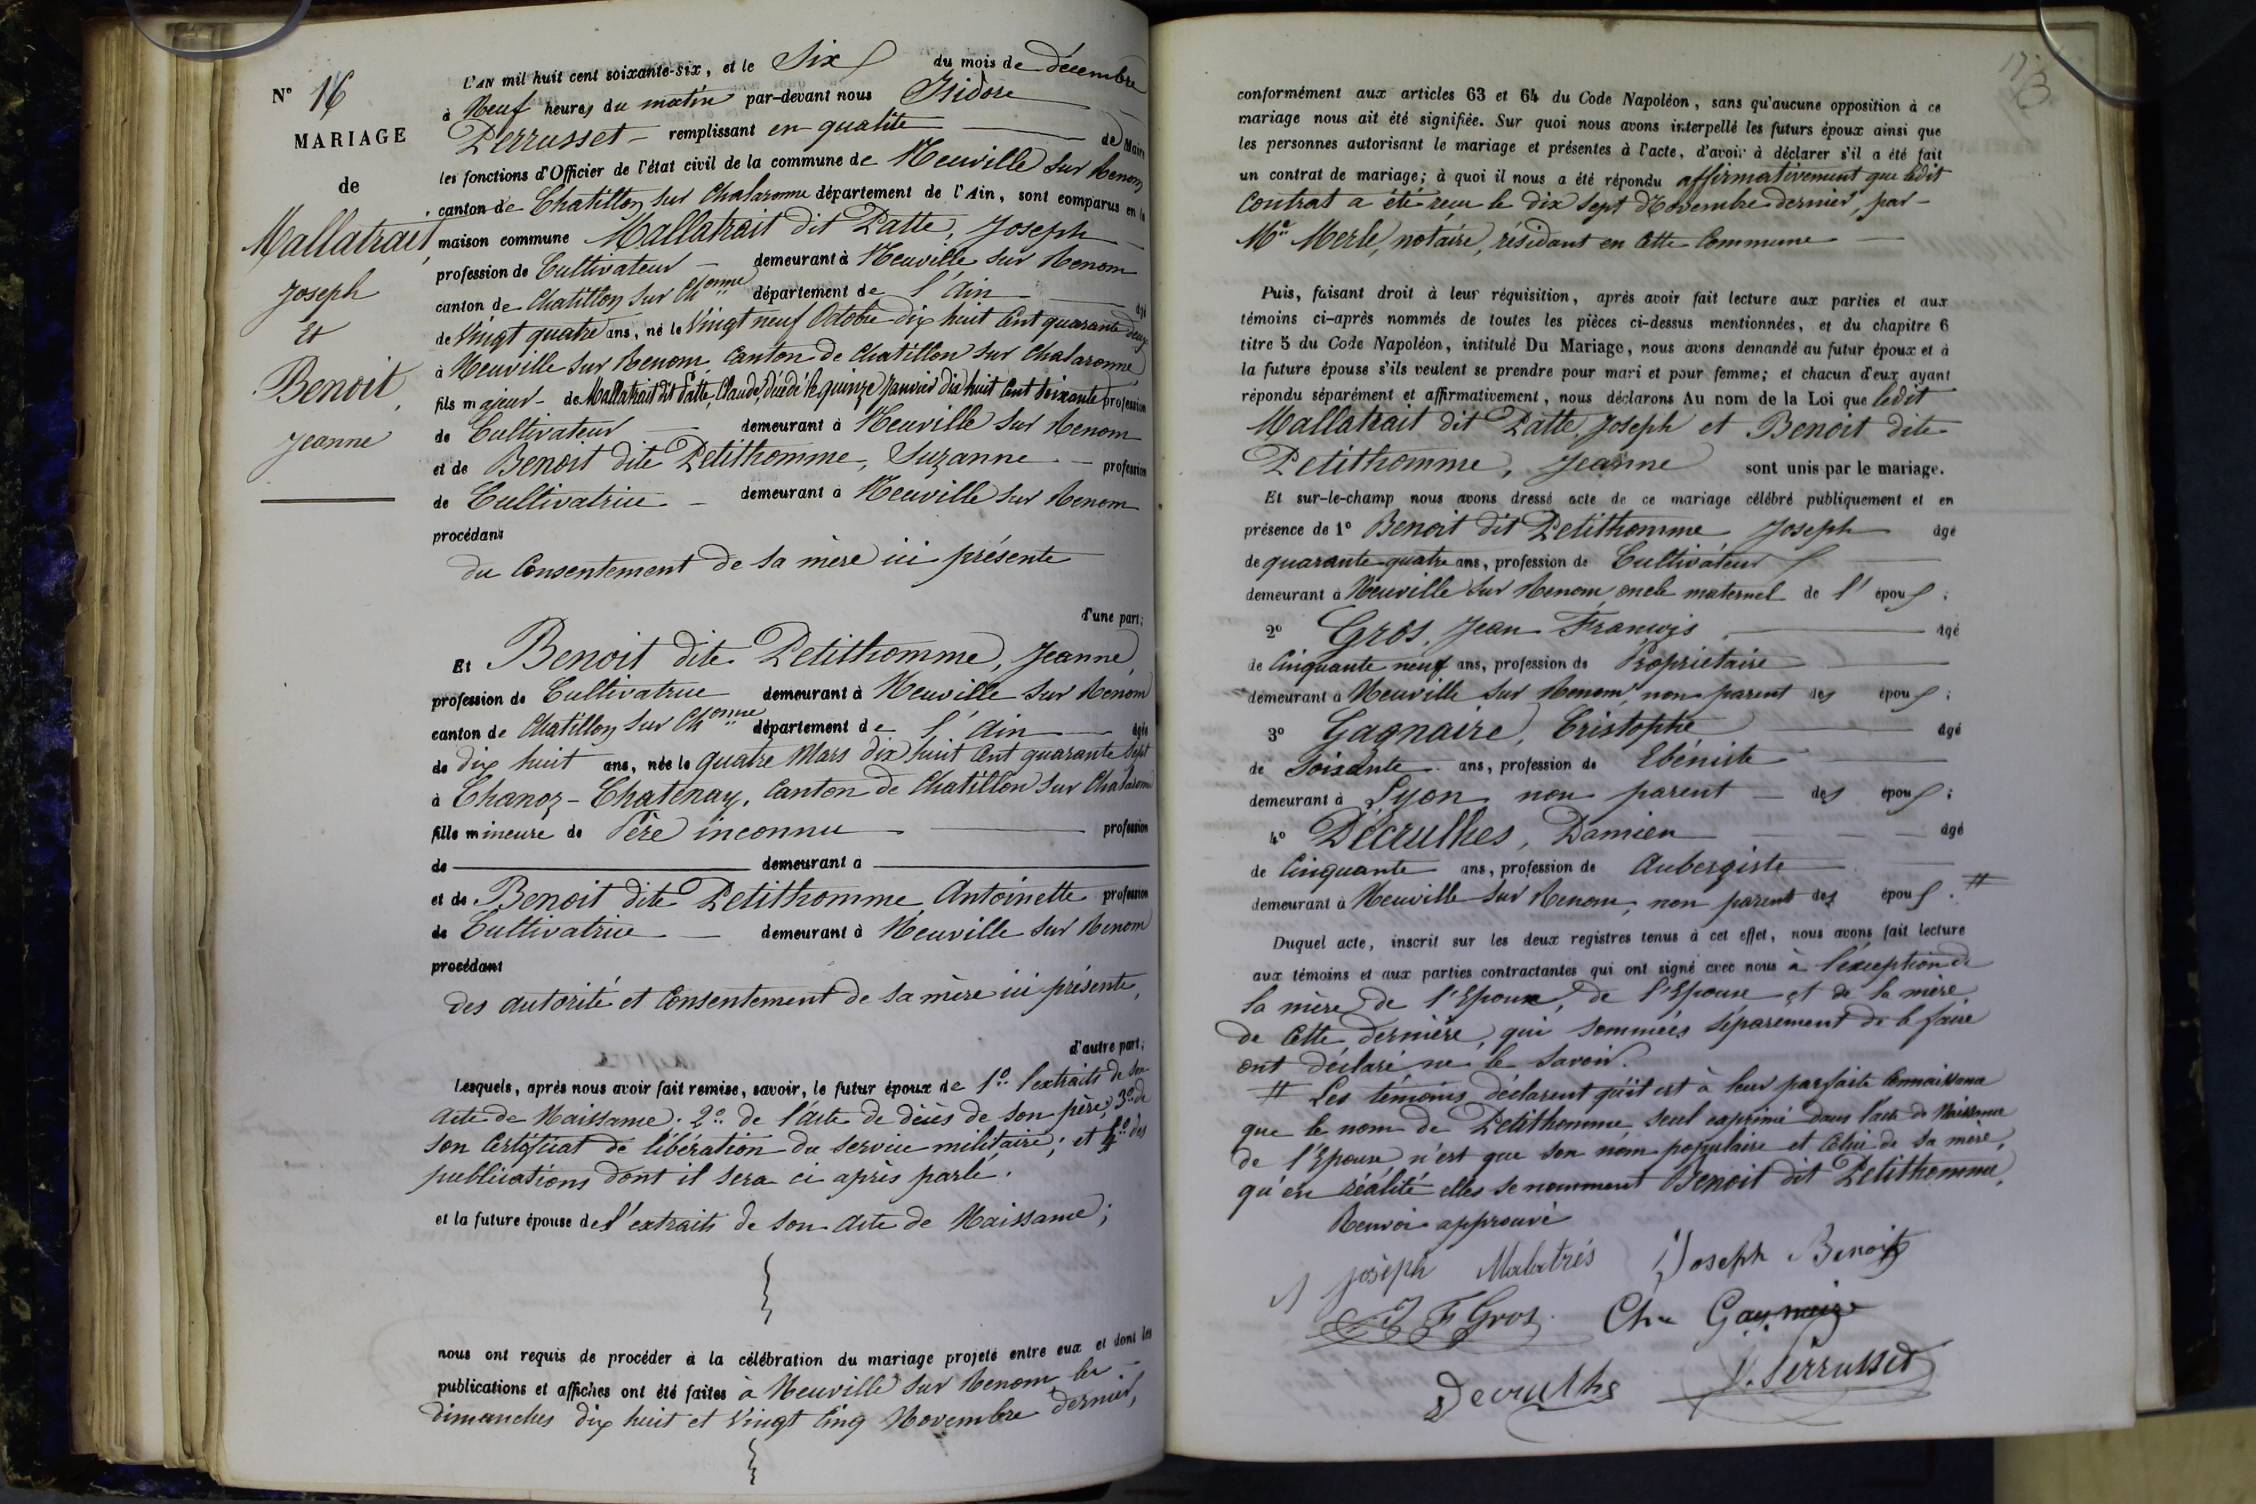 N° 16
MARIAGE
de
Mallatrait,
Joseph
et
Benoit,
Jeanne
L'AN mil huit cent soixante-six, et le Six du mois de décembre
à Neuf heures du matin par-devant nous Isidore
Perrusset remplissant en qualité de Maire
les fonctions d'Officier de l'état civil de la commune de Neuville sur Renom
canton de Chatillon sur Chalaronne département de l'Ain, sont comparus en la
maison commune Mallatrait dit Patte, Joseph
profession de Cultivateur demeurant à Neuville sur Renom
canton de Chatillon sur Chonne département de l'Ain âgé
de Vingt quatre ans, né le Vingt neuf Octobre dix huit Cent quarante deux
à Neuville sur Renom, Canton de Chatillon sur Chalaronne,
fils majeur de Mallatrait dit Patte, Claude, décédé le quinze Janvier dix huit Cent Soixante profession
de Cultivateur demeurant à Neuville sur Renom
et de Benoit dite Petithomme, Suzanne profession
de Cultivatrice demeurant à Neuville sur Renom
procédant
du Consentement de sa mère ici présente
d'une part;
Et Benoit dite Petithomme, Jeanne,
profession de Cultivatrice demeurant à Neuville sur Renom
canton de Chatillon sur Chonne département de l'Ain âgée
de dix huit ans, née le quatre Mars dix huit Cent quarante Sept
à Chanoz-Chatenay, Canton de Chatillon sur Chalaronne
fille mineure de Père inconnu profession
de demeurant à
et de Benoit dite Petithomme Antoinette profession
de Cultivatrice demeurant à Neuville sur Renom
procédant
des autorité et Consentement de sa mère ici présente,
d'autre part;
Lesquels, après nous avoir fait remise, savoir, le futur époux de 1° l'extraits de son
acte de Naissance; 2° de l'acte de décès de son père; 3° de
son Certificat de libération du service militaire; et 4° des
publications dont il sera ci après parlé.
et la future épouse de l'extraits de son acte de Naissance;
nous ont requis de procéder à la célébration du mariage projeté entre eux et dont les
publications et affiches ont été faites à Neuville sur Renom les
dimanches dix huit et Vingt Cinq Novembre dernier,
conformément aux articles 63 et 64 du Code Napoléon, sans qu'aucune opposition à ce
mariage nous ait été signifiée. Sur quoi nous avons interpellé les futurs époux ainsi que
les personnes autorisant le mariage et présentes à l'acte, d'avoir à déclarer s'il a été fait
un contrat de mariage; à quoi il nous a été répondu affirmativement que ledit
Contrat a été reçu le dix sept Novembre dernier, par
Me Merle, notaire, résidant en Cette Commune
Puis, faisant droit à leur réquisition, après avoir fait lecture aux parties et aux
témoins ci-après nommés de toutes les pièces ci-dessus mentionnées, et du chapitre 6
titre 5 du Code Napoléon, intitulé Du Mariage, nous avons demandé au futur époux et à
la future épouse s'ils veulent se prendre pour mari et pour femme; et chacun d'eux ayant
répondu séparément et affirmativement, nous déclarons Au nom de la Loi que ledit
Mallatrait dit Patte, Joseph et Benoit dite
Petithomme, Jeanne sont unis par le mariage.
Et sur-le-champ nous avons dressé acte de ce mariage célébré publiquement et en
présence de 1° Benoit dit Petithomme Joseph âgé
de quarante quatre ans, profession de Cultivateur
demeurant à Neuville sur Renom, oncle maternel de l' épou ;
2° Gros, Jean François âgé
de Cinquante neuf ans, profession de Propriétaire
demeurant à Neuville sur Renom, non parent des épou ;
3° Gagnaire, Cristophe âgé
de Soixante ans, profession de Ebéniste
demeurant à Lyon non parent des épou ;
4° Décrulhes, Damien âgé
de Cinquante ans, profession de Aubergiste
demeurant à Neuville sur Renom, non parent des épou . #
Duquel acte, inscrit sur les deux registres tenus à cet effet, nous avons fait lecture
aux témoins et aux parties contractantes qui ont signé avec nous à l'exception de
la mère de l'Epoux, de l'Epouse et de la mère
de Cette dernière, qui sommées séparément de le faire
ont déclaré ne le savoir.
# Les témoins déclarent qu'il est à leur parfaite Connaissance
que le nom de Petithomme seul exprimé dans l'acte de Naissance
de l'Epouse n'est que son nom populaire et Celui de sa mère,
qu'en réalité elles se nomment Benoit dit Petithomme,
Renvoi approuvé
joseph Malatrés Joseph Benoit
J F Gros. Che Gagnaire
Decrulhe I. Perrusset